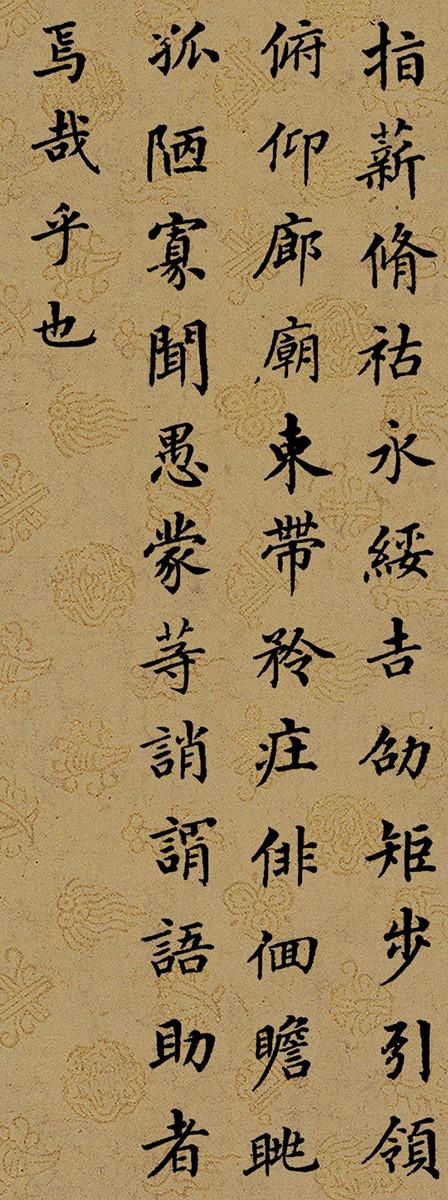 指薪脩祜永綏吉劭矩步引領
俯仰廊廟束帶矜庄俳佪瞻眺
孤陋寡聞愚蒙等誚謂語助者
焉哉乎也